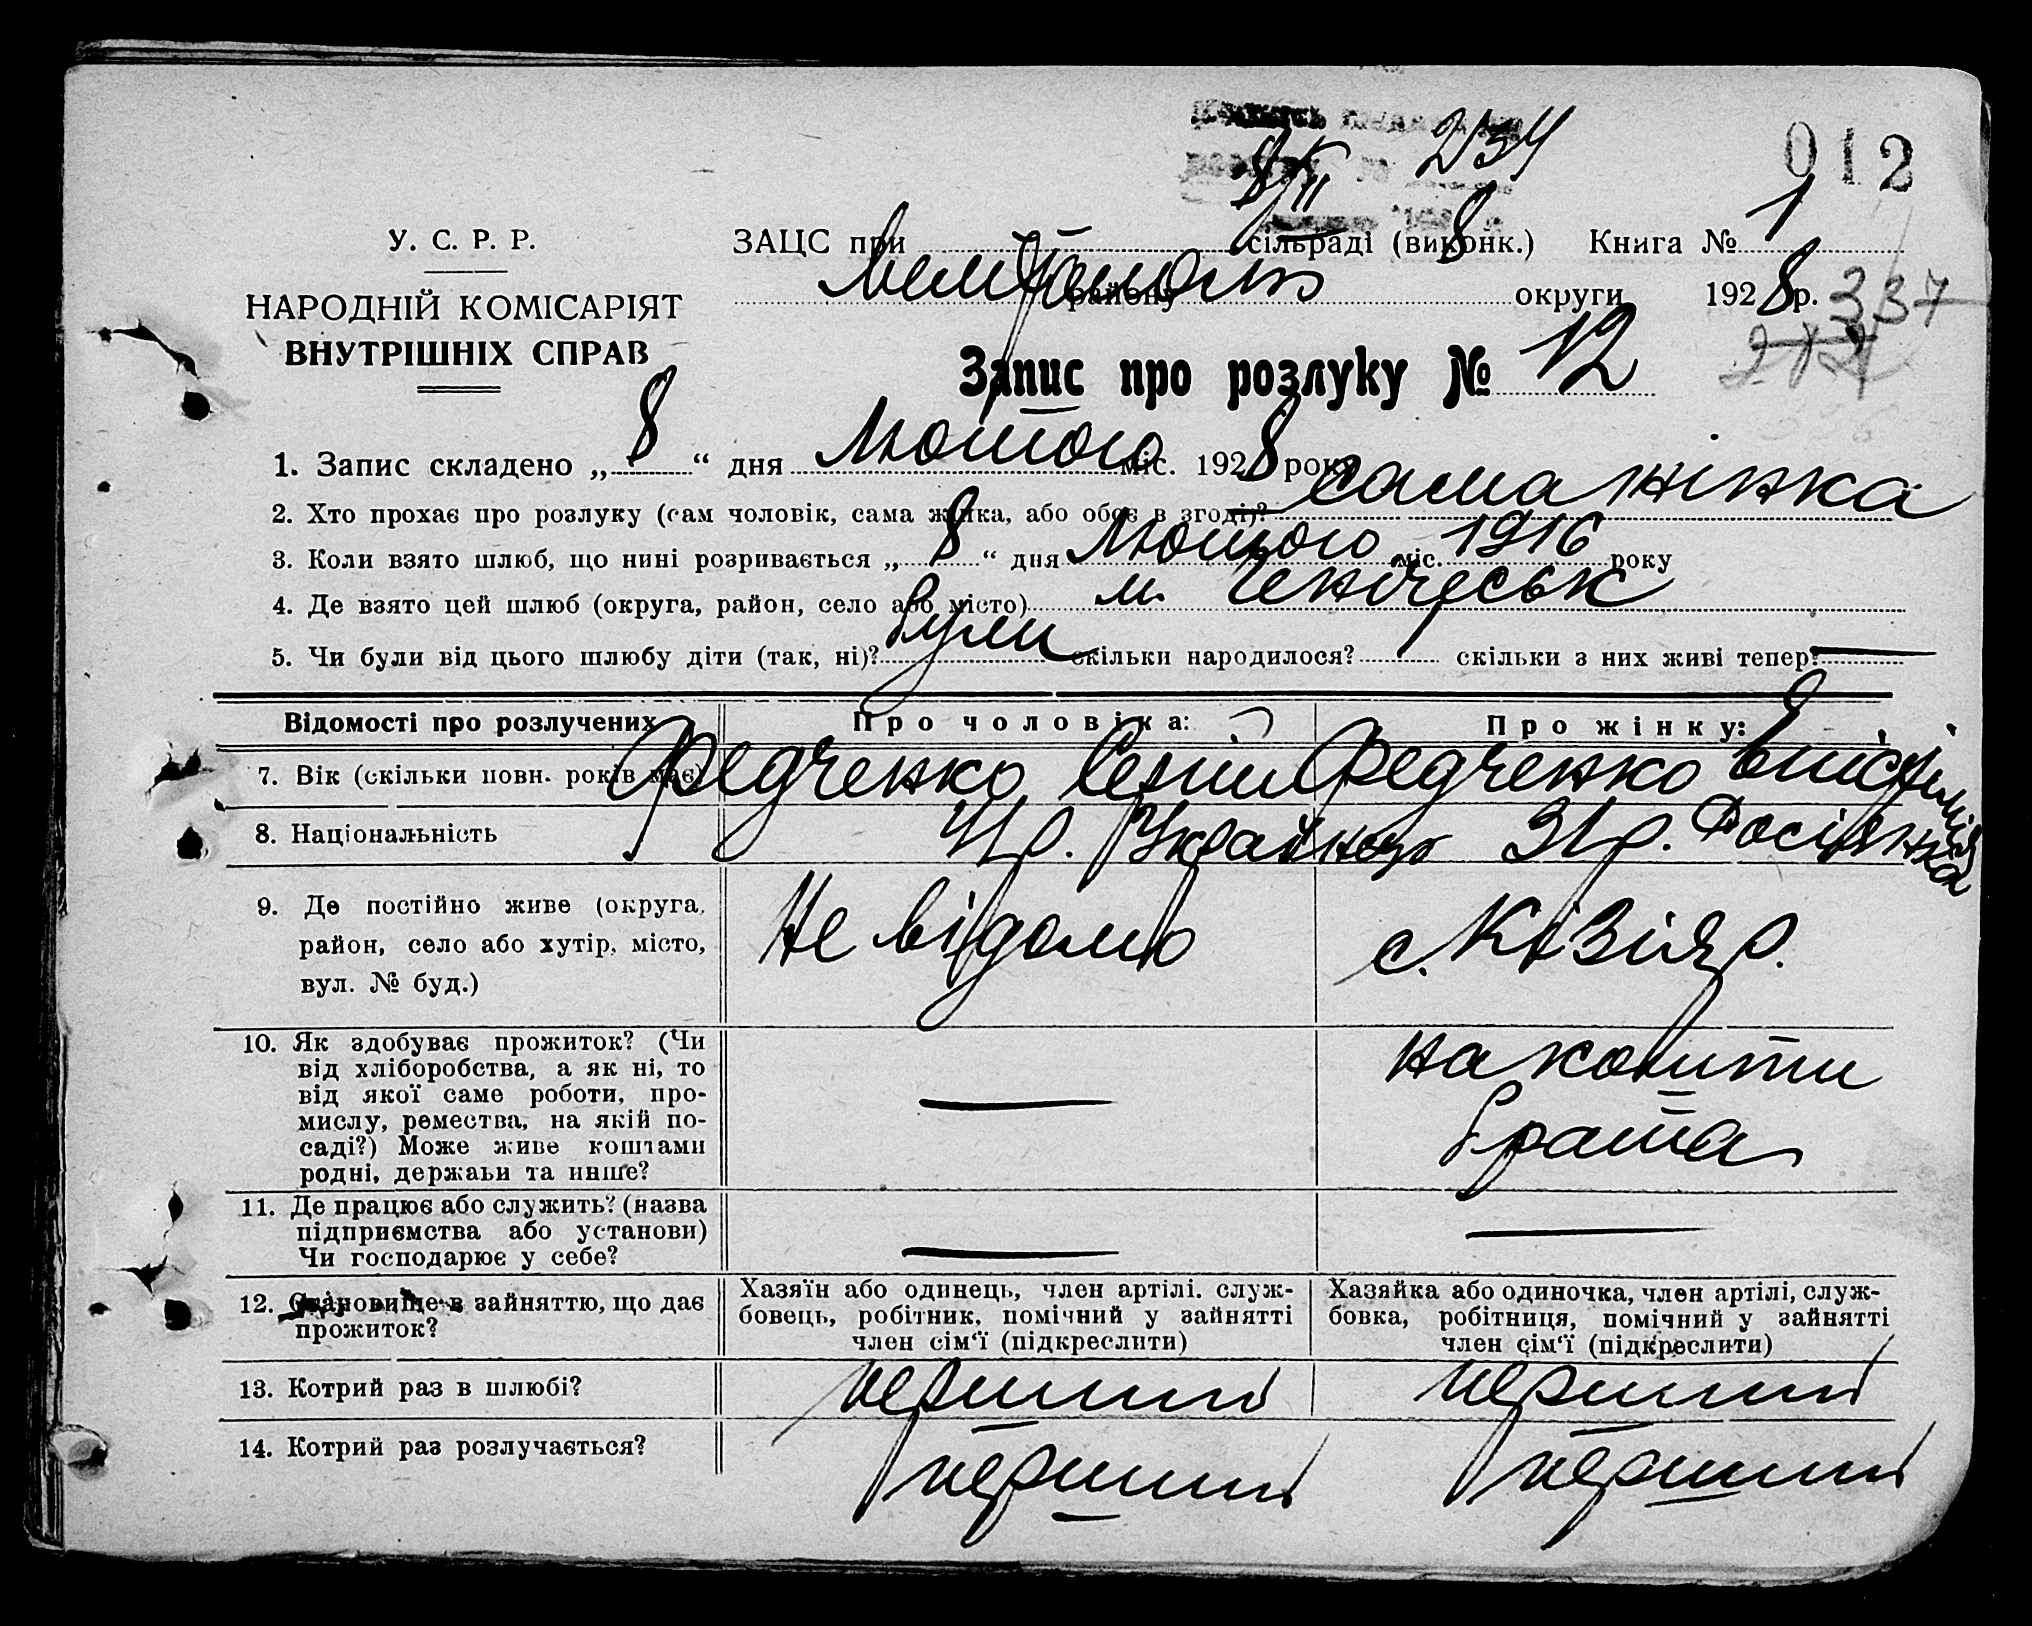 234
012
8/II 8
У. С. Р. Р.
ЗАЦС при сільраді (виконк.) Книга № 1
НАРОДНІЙ КОМІСАРІЯТ
ВНУТРІШНІХ СПРАВ
району округи 1928 р. 337
Запис про розлуку № 12
1. Запис складено „ 8 “ дня Лютого міс. 1928 року
2. Хто прохає про розлуку (сам чоловік, сама жінка, або обоє в згоді)? сама жінка
3. Коли взято шлюб, що нині розривається „ 8 “ дня Лютого міс. 1916 року
4. Де взято цей шлюб (округа, район, село або місто) м. Генічеськ
5. Чи були від цього шлюбу діти (так, ні)? були скільки народилося? скільки з них живі тепер?
Відомості про розлучених Про чоловіка: Про жінку:
7. Вік (скільки повн. років має) Федченко Сергій Федченко
8. Національність 41 р. Українець 31 р. Росіянка
9. Де постійно живе (округа, район, село або хутір, місто, вул. № буд.)
Не відомо
с. Кізіяр.
10. Як здобуває прожиток? (Чи
від хліборобства, а як ні, то
від якої саме роботи, про-
мислу, ремества, на якій по-
саді?) Може живе коштами
родні, держави та инше?
на кошти
брата
11. Де працює або служить? (назва
підприємства або установи)
Чи господарює у себе?
12. Становище в зайняттю, що дає
прожиток?
Хазяїн або одинець, член артілі. служ-
бовець, робітник, помічний у зайнятті
член сім'ї (підкреслити)
Хазяйка або одиночка, член артілі, служ-
бовка, робітниця, помічний у зайнятті
член сім'ї (підкреслити)
13. Котрий раз в шлюбі? перший перший
14. Котрий раз розлучається? перший перший